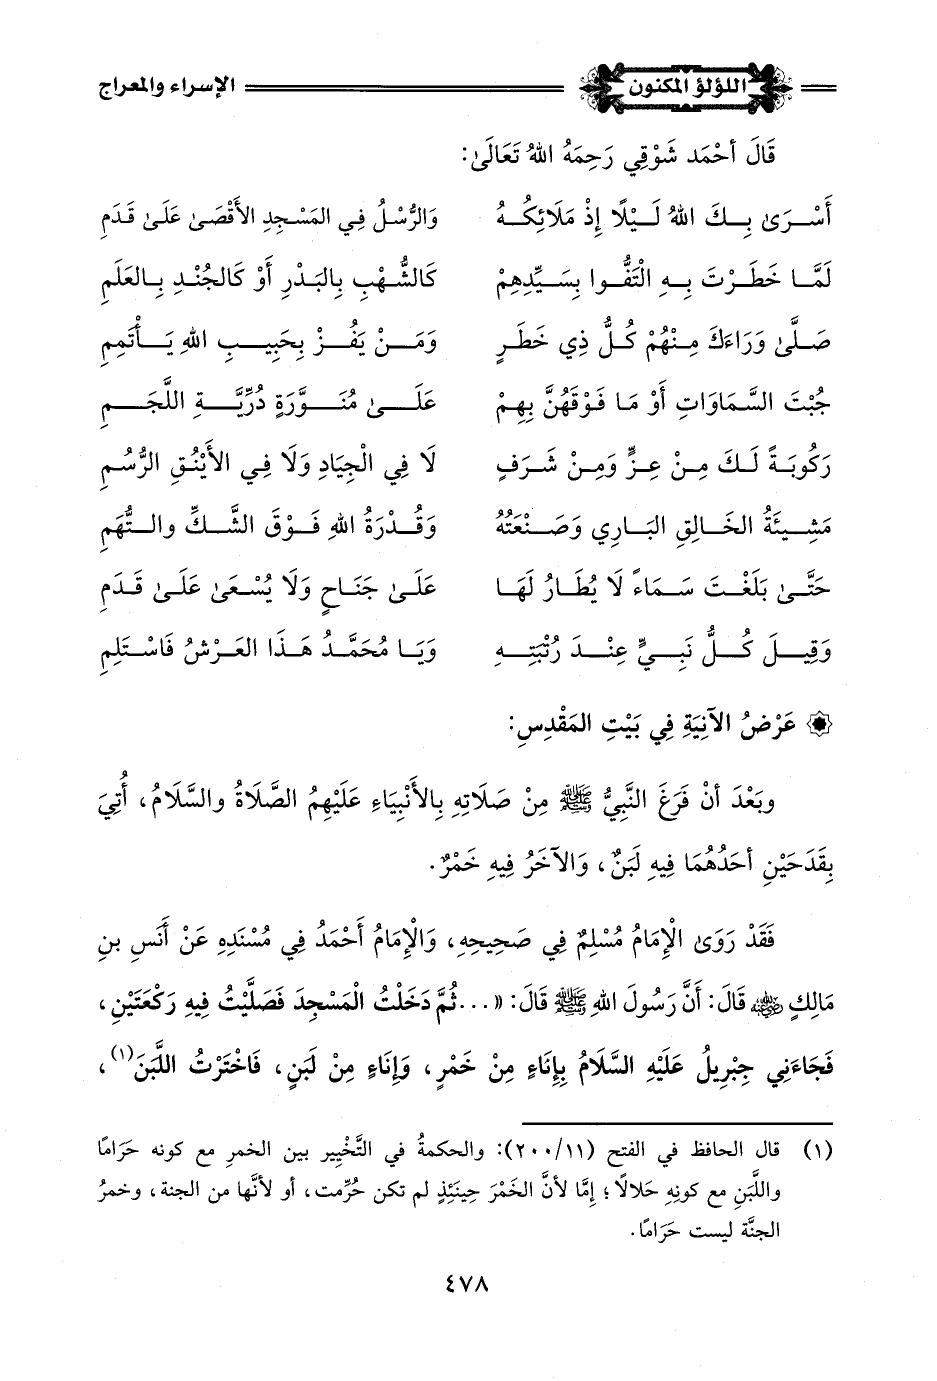 اللؤلؤ المكنون الإسراء والمعراج
قَالَ أَحْمَد شَوْقِي رَحِمَهُ اللهُ تَعَالَىٰ:
أَسْرَىٰ بِكَ اللهُ لَيْلًا إِذْ مَلَائِكُهُ وَالرُّسْلُ فِي المَسْجِدِ الأَقْصَىٰ عَلَىٰ قَدَمِ
لَمَّا خَطَرْتَ بِهِ الْتَفُّوا بِسَيِّدِهِمْ كَالشُّهْبِ بِالبَدْرِ أَوْ كَالجُنْدِ بِالعَلَمِ
صَلَّىٰ وَرَاءَكَ مِنْهُمْ كُلُّ ذِي خَطَرٍ وَمَنْ يَفُزْ بِحَبِيبِ اللهِ يَأْتَمِمِ
جُبْتَ السَّمَاوَاتِ أَوْ مَا فَوْقَهُنَّ بِهِمْ عَلَىٰ مُنَوَّرَةٍ دُرِّيَّةِ اللَّجَمِ
رَكُوبَةً لَكَ مِنْ عِزٍّ وَمِنْ شَرَفٍ لَا فِي الْجِيَادِ وَلَا فِي الأَيْنُقِ الرُّسُمِ
مَشِيئَةُ الخَالِقِ البَارِي وَصَنْعَتُهُ وَقُدْرَةُ اللهِ فَوْقَ الشَّكِّ والتُّهَمِ
حَتَّىٰ بَلَغْتَ سَمَاءً لَا يُطَارُ لَهَا عَلَىٰ جَنَاحٍ وَلَا يُسْعَىٰ عَلَىٰ قَدَمِ
وَقِيلَ كُلُّ نَبِيٍّ عِنْدَ رُتْبَتِهِ وَيَا مُحَمَّدُ هَذَا العَرْشُ فَاسْتَلِمِ
عَرْضُ الآنِيَةِ فِي بَيْتِ المَقْدِسِ:
وبَعْدَ أنْ فَرَغَ النَّبِيُّ ﷺ مِنْ صَلَاتِهِ بِالأَنْبِيَاءِ عَلَيْهِمُ الصَّلَاةُ والسَّلَامُ، أُتِيَ
بِقَدَحَيْنِ أحَدُهُمَا فِيهِ لَبَنٌ، وَالآخَرُ فِيهِ خَمْرٌ.
فَقَدْ رَوَىٰ الْإِمَامُ مُسْلِمٌ فِي صَحِيحِهِ، وَالْإِمَامُ أَحْمَدُ فِي مُسْنَدِهِ عَنْ أَنَسِ بنِ
مَالِكٍ ﷺ قَالَ: أَنَّ رَسُولَ اللهِ ﷺ قَالَ: «...ثُمَّ دَخَلْتُ الْمَسْجِدَ فَصَلَّيْتُ فِيهِ رَكْعَتَيْنِ،
فَجَاءَنِي جِبْرِيلُ عَلَيْهِ السَّلَامُ بِإِنَاءٍ مِنْ خَمْرٍ، وَإِنَاءٍ مِنْ لَبَنٍ، فَاخْتَرْتُ اللَّبَنَ(١)،
(١) قال الحافظ في الفتح (١١/ ٢٠٠): والحكمةُ في التَّخْيِيرِ بين الخمرِ مع كونه حَرَامًا
واللَّبَنِ مع كونِهِ حَلَالًا؛ إمَّا لأنَّ الخَمْرَ حِينَئِذٍ لم تكن حُرِّمت، أو لأنَّها من الجنة، وخمرُ
الجنَّة ليست حَرَامًا.
٤٧٨